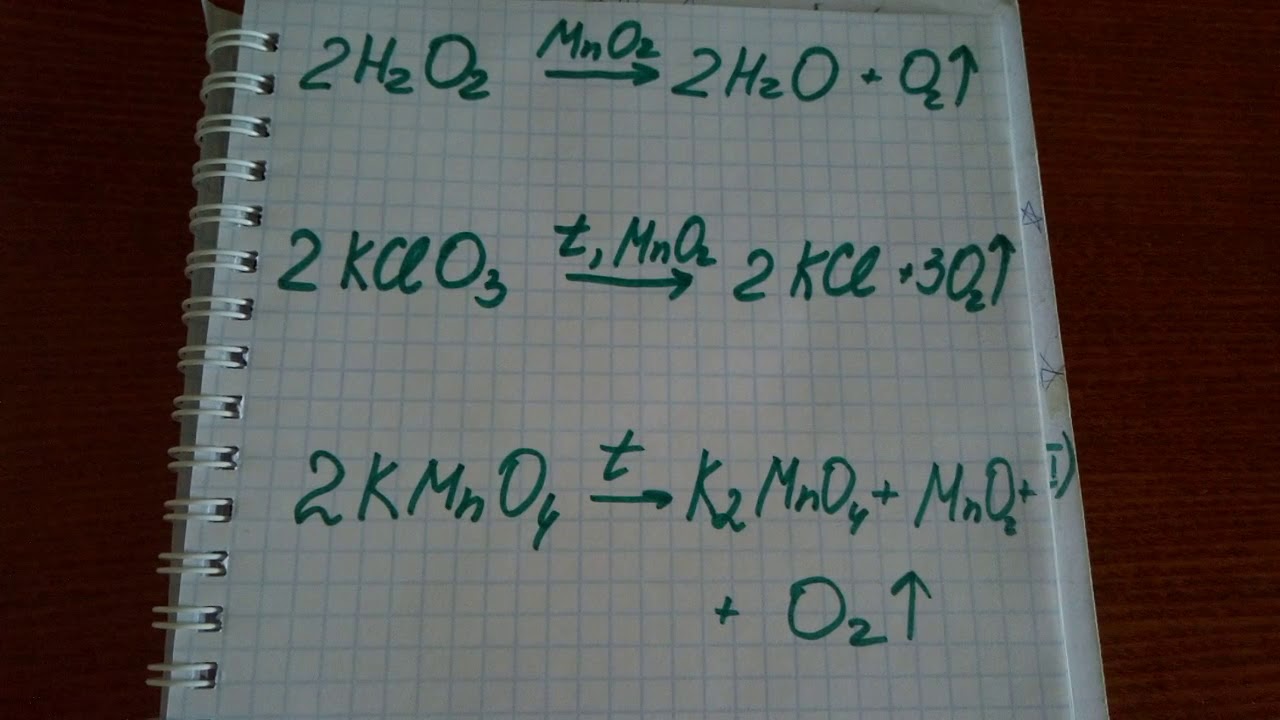 2H₂O₂ —MnO₂→ 2H₂O + O₂↑
2KClO₃ —t, MnO₂→ 2KCl + 3O₂↑
2KMnO₄ —t→ K₂MnO₄ + MnO₂ +
+ O₂↑